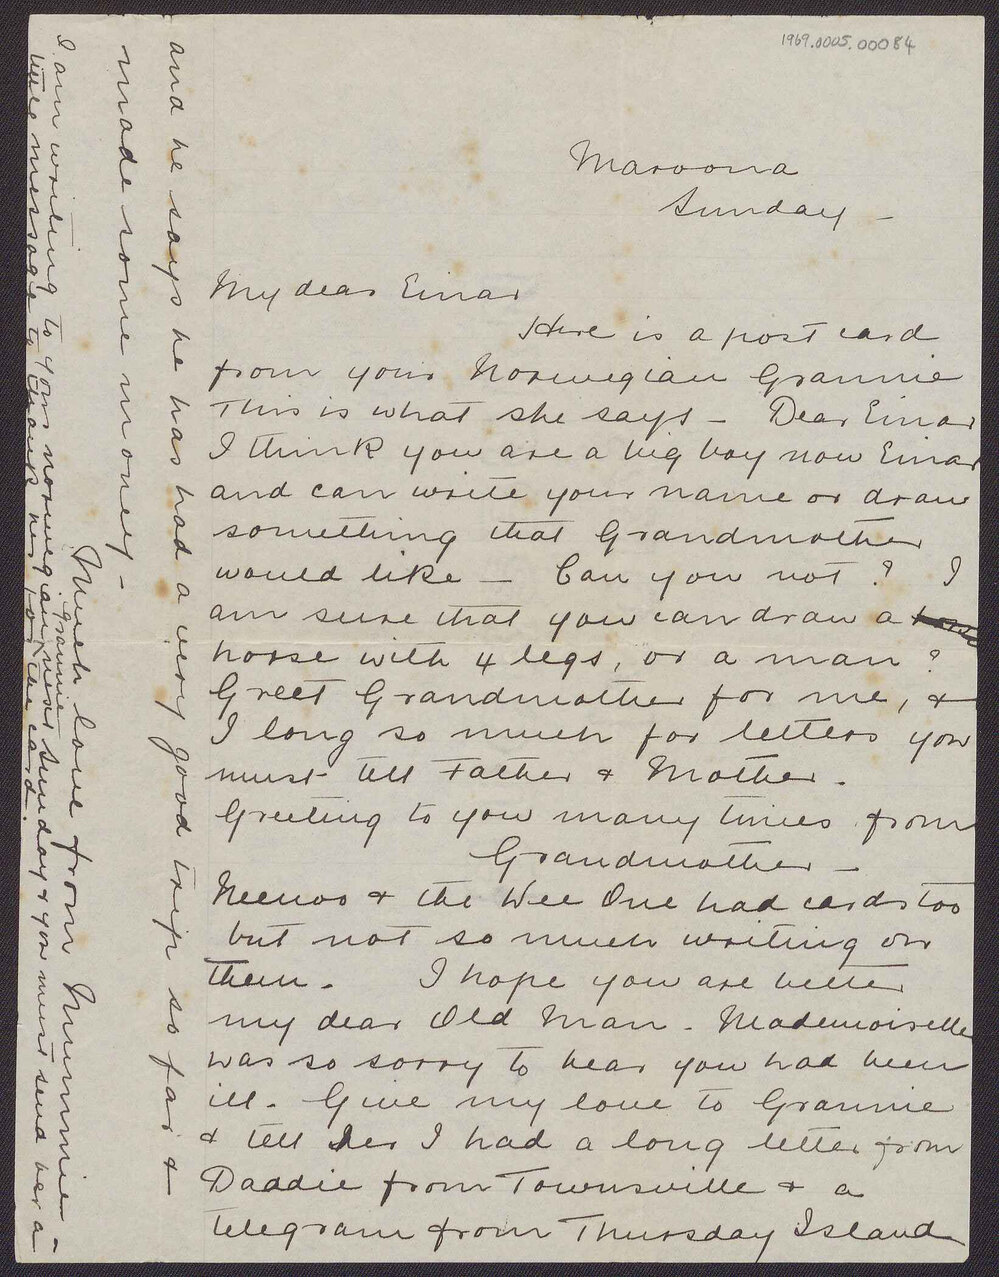 1969.0005.00084
Maroona
Sunday -
My dear Einar
Here is a post card
from your Norwegian Grannie
This is what she says - Dear Einar
I think you are a big boy now Einar
and can write your name or draw
something that Grandmother
would like - Can you not? I
am sure that you can draw a
horse with 4 legs, or a man?
Greet Grandmother for me, &
I long so much for letters you
must tell Father & Mother.
Greeting to you many times from
Grandmother -
& the Wee One had cards too
but not so much writing on
them. I hope you are better
my dear Old Man. Mademoiselle
was so sorry to hear you had been
ill. Give my love to Grannie
& tell her I had a long letter from
Daddie from Townsville & a
telegram from Thursday Island
and he says he has had a very good trip so far &
made some money -
Much love from Mummie -
I am writing to your norwegian Grannie next Sunday & you must send her a
little message to thank her for the card.